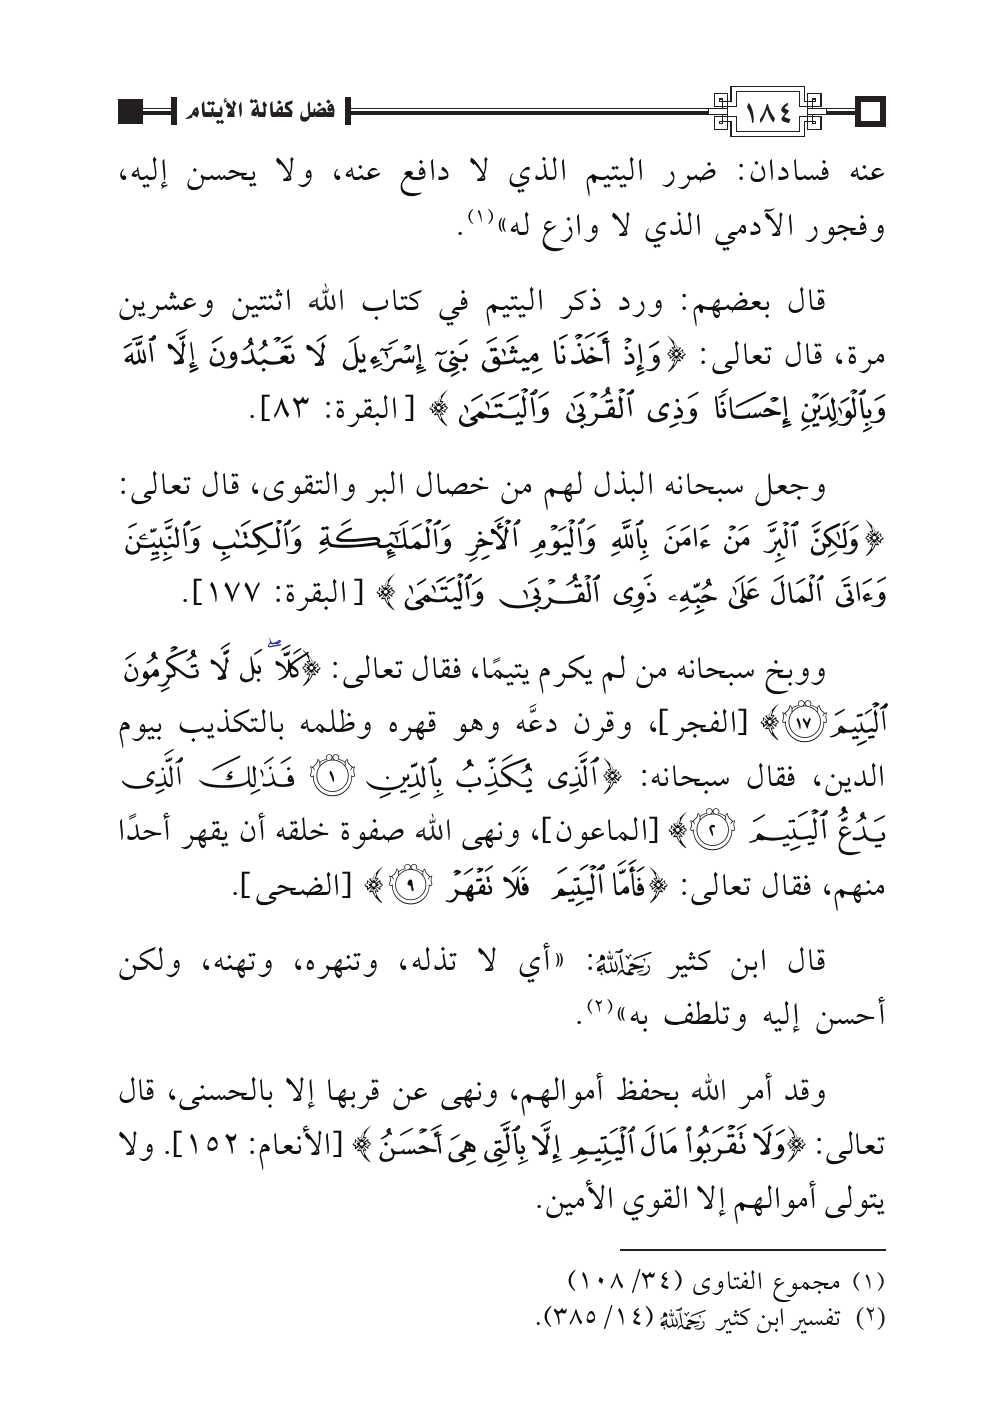 ١٨٤ فضل كفالة الأيتام
عنه فسادان: ضرر اليتيم الذي لا دافع عنه، ولا يحسن إليه،
وفجور الآدمي الذي لا وازع له»(١).
قال بعضهم: ورد ذكر اليتيم في كتاب الله اثنتين وعشرين
مرة، قال تعالى: ﴿وَإِذْ أَخَذْنَا مِيثَٰقَ بَنِىٓ إِسْرَٰٓءِيلَ لَا تَعْبُدُونَ إِلَّا ٱللَّهَ
وَبِٱلْوَٰلِدَيْنِ إِحْسَانًا وَذِى ٱلْقُرْبَىٰ وَٱلْيَتَٰمَىٰ﴾ [البقرة: ٨٣].
وجعل سبحانه البذل لهم من خصال البر والتقوى، قال تعالى:
﴿وَلَٰكِنَّ ٱلْبِرَّ مَنْ ءَامَنَ بِٱللَّهِ وَٱلْيَوْمِ ٱلْأَخِرِ وَٱلْمَلَٰٓئِكَةِ وَٱلْكِتَٰبِ وَٱلنَّبِيِّـۧنَ
وَءَاتَى ٱلْمَالَ عَلَىٰ حُبِّهِۦ ذَوِى ٱلْقُرْبَىٰ وَٱلْيَتَٰمَىٰ﴾ [البقرة: ١٧٧].
ووبخ سبحانه من لم يكرم يتيمًا، فقال تعالى: ﴿كَلَّاۖ بَل لَّا تُكْرِمُونَ
ٱلْيَتِيمَ ١٧﴾ [الفجر]، وقرن دعَّه وهو قهره وظلمه بالتكذيب بيوم
الدين، فقال سبحانه: ﴿ٱلَّذِى يُكَذِّبُ بِٱلدِّينِ ١ فَذَٰلِكَ ٱلَّذِى
يَدُعُّ ٱلْيَتِيمَ ٢﴾ [الماعون]، ونهى الله صفوة خلقه أن يقهر أحدًا
منهم، فقال تعالى: ﴿فَأَمَّا ٱلْيَتِيمَ فَلَا تَقْهَرْ ٩﴾ [الضحى].
قال ابن كثير رَحِمَهُ ٱللَّهُ: «أي لا تذله، وتنهره، وتهنه، ولكن
أحسن إليه وتلطف به»(٢).
وقد أمر الله بحفظ أموالهم، ونهى عن قربها إلا بالحسنى، قال
تعالى: ﴿وَلَا تَقْرَبُوا۟ مَالَ ٱلْيَتِيمِ إِلَّا بِٱلَّتِى هِىَ أَحْسَنُ﴾ [الأنعام: ١٥٢]. ولا
يتولى أموالهم إلا القوي الأمين.
(١) مجموع الفتاوى (٣٤/ ١٠٨)
(٢) تفسير ابن كثير رَحِمَهُ ٱللَّهُ (١٤/ ٣٨٥).